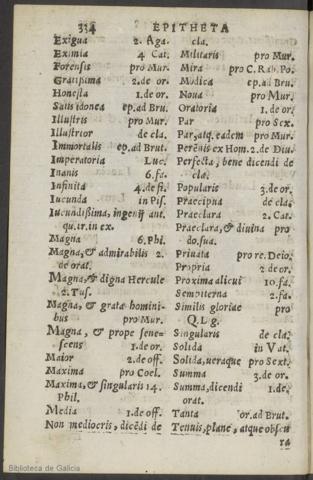 334 EPITHETA
Exigua 2. Aga.
Eximia 4 Cat.
Forensis pro Mur.
Gratissima 2.de or.
Honesta 1.de or.
Satis idonea ep.ad Bru.
Illustris pro Mur.
Illustrior de cla.
Immortalis ep.ad Brut.
Imperatoria Luc.
Inanis 6.fa.
Infinita 4.de fi.
Iucunda in Pis.
Iucundißima, ingenij ant.
qu.ir.in ex.
Magna 6. Phi.
Magna, & admirabilis 2.
de orat.
Magna, & digna Hercule
2. Tus.
Magna, & grata homini-
bus pro Mur.
Magna, & prope sene-
scens 1.de or.
Maior 2.de off.
Maxima pro Coel.
Maxima, & singularis 14.
Phil.
Media 1.de off.
Non mediocris, dicẽdi de
cla.
Militaris pro Mur.
Mira pro C. Rab. Po.
Modica ep.ad Bru.
Noua pro Mur.
Oratoria 1.de or.
Par pro Sex.
Par, atq. eadem pro Mur.
Perẽnis ex Hom. 2.de Diu.
Perfecta, bene dicendi de
cla.
Popularis 3.de or.
Praecipua de cla.
Praeclara 2. Cat.
Praeclara, & diuina pro
do.sua.
Priuata pro re.Deio.
Propria 2 de or.
Proxima alicui 10.fa.
Sempiterna 2.fa.
Similis gloriae pro
Q.Lg.
Singularis de cla.
Solida in Vat.
Solida, ueraque pro Sext.
Summa 3.de or.
Summa, dicendi 1.de.
orat.
Tanta or.ad Brut.
Tenuis, planè, atque obscu
ra
Biblioteca de Galicia